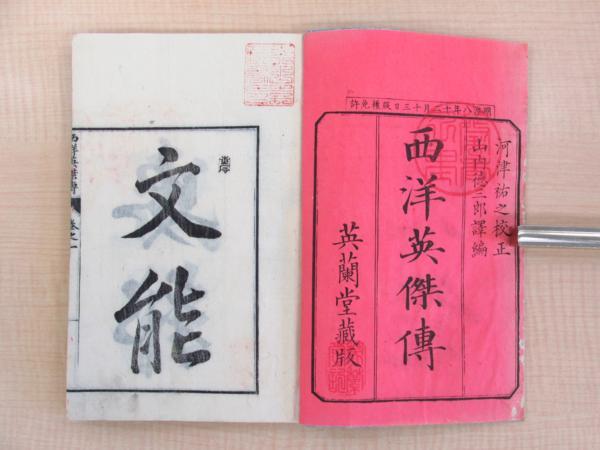 明治八年十二月十三日版權免許
河津祐之校正
山内德三郎譯編
西洋英傑傳
英蘭堂藏版
文能
西洋英傑傳 卷之一